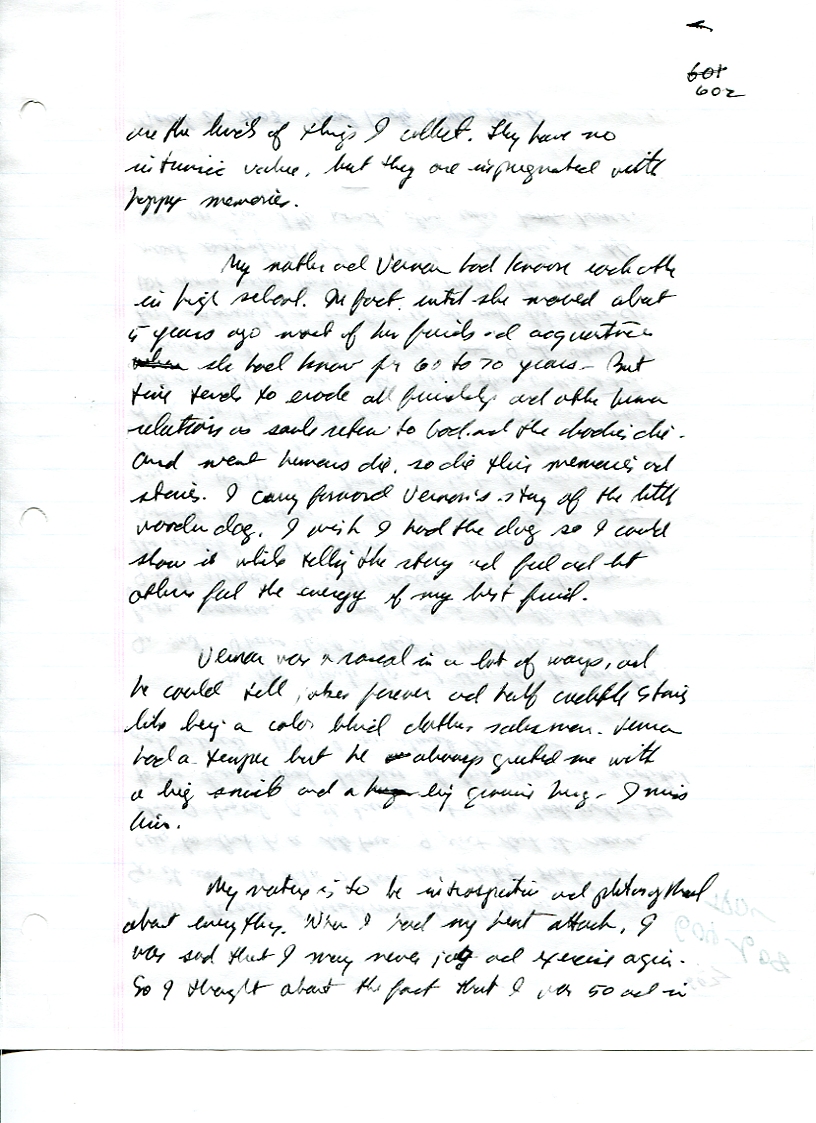 601
602
are the kinds of things I collect. They have no
intrinsic value, but they are impregnated with
happy memories.
My mother and Vernon had known each other
in high school. In fact, until she moved about
5 years ago most of her friends and acquaintances
when she had know for 60 to 70 years - But
time tends to erode all friendship and other human
relations as souls return to God and the bodies die.
And went humans die, so die their memories and
stories. I carry forward Vernon's story of the little
wooden dog. I wish I had the dog so I could
show it while telling the story and feel and let
others feel the energy of my best friend.
Vernon was a rascal in a lot of ways, and
he could tell jokes forever and half credible stories
like being a color blind clothes salesman. Vernon
had a temper but he always greeted me with
a big smile and a huge big genuine hug - I miss
him.
My nature is to be introspective and philosophical
about everything. When I had my heart attack, I
was sad that I may never jog and exercise again.
So I thought about the fact that I was 50 and in